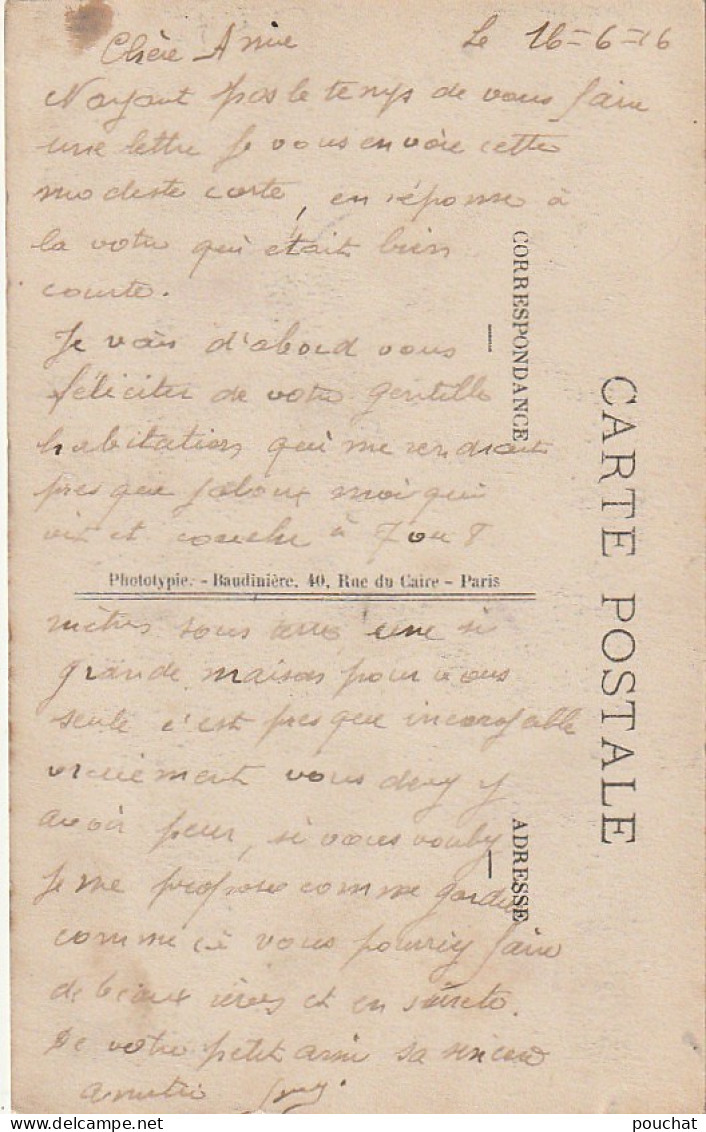 Chère Amie Le 16=6=16
N'ayant pas le temps de vous faire
une lettre Je vous envoie cette
modeste carte, en réponse à
la votre qui était bien
courte.
Je vais d'abord vous
féliciter de votre gentille
habitation qui me rendrait
presque jaloux moi qui
vit et couche à 7 ou 8
Phototypie. - Baudinière, 40, Rue du Caire - Paris
mètres sous terre, une si
grande maison pour vous
seule c'est presque incoroyable
vraiement vous devez y
avoir peur, si vous voulez
Je me propose comme gardien
comme ci vous pourrez faire
de beaux rèves et en sureté.
De votre petit ami sa sincere
amitié
CORRESPONDANCE
ADRESSE
CARTE POSTALE